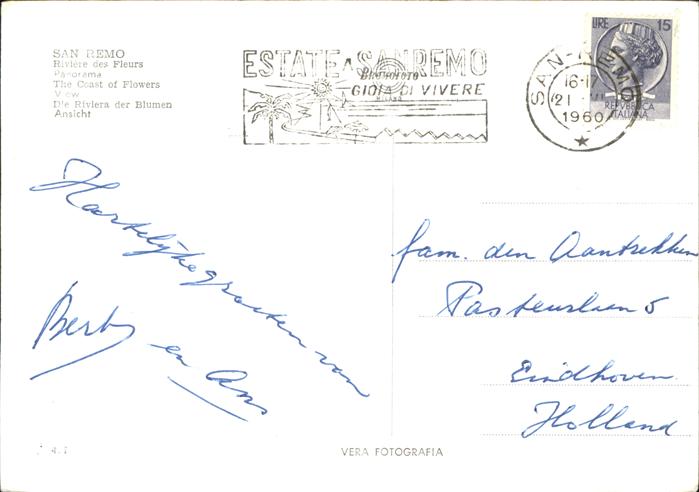 SAN REMO
Rivière des Fleurs
Panorama
The Coast of Flowers
View
Die Riviera der Blumen
Ansicht
ESTATE A SANREMO
GIOIA DI VIVERE
MILANO
LIRE 15
REPVBBLICA
ITALIANA
SAN-REMO
16-17
21
1960
Hartelijke groeten van
Bert en Ans
fam. den Aantrekker
Pasteurlaan 5
Eindhoven
Holland
VERA FOTOGRAFIA